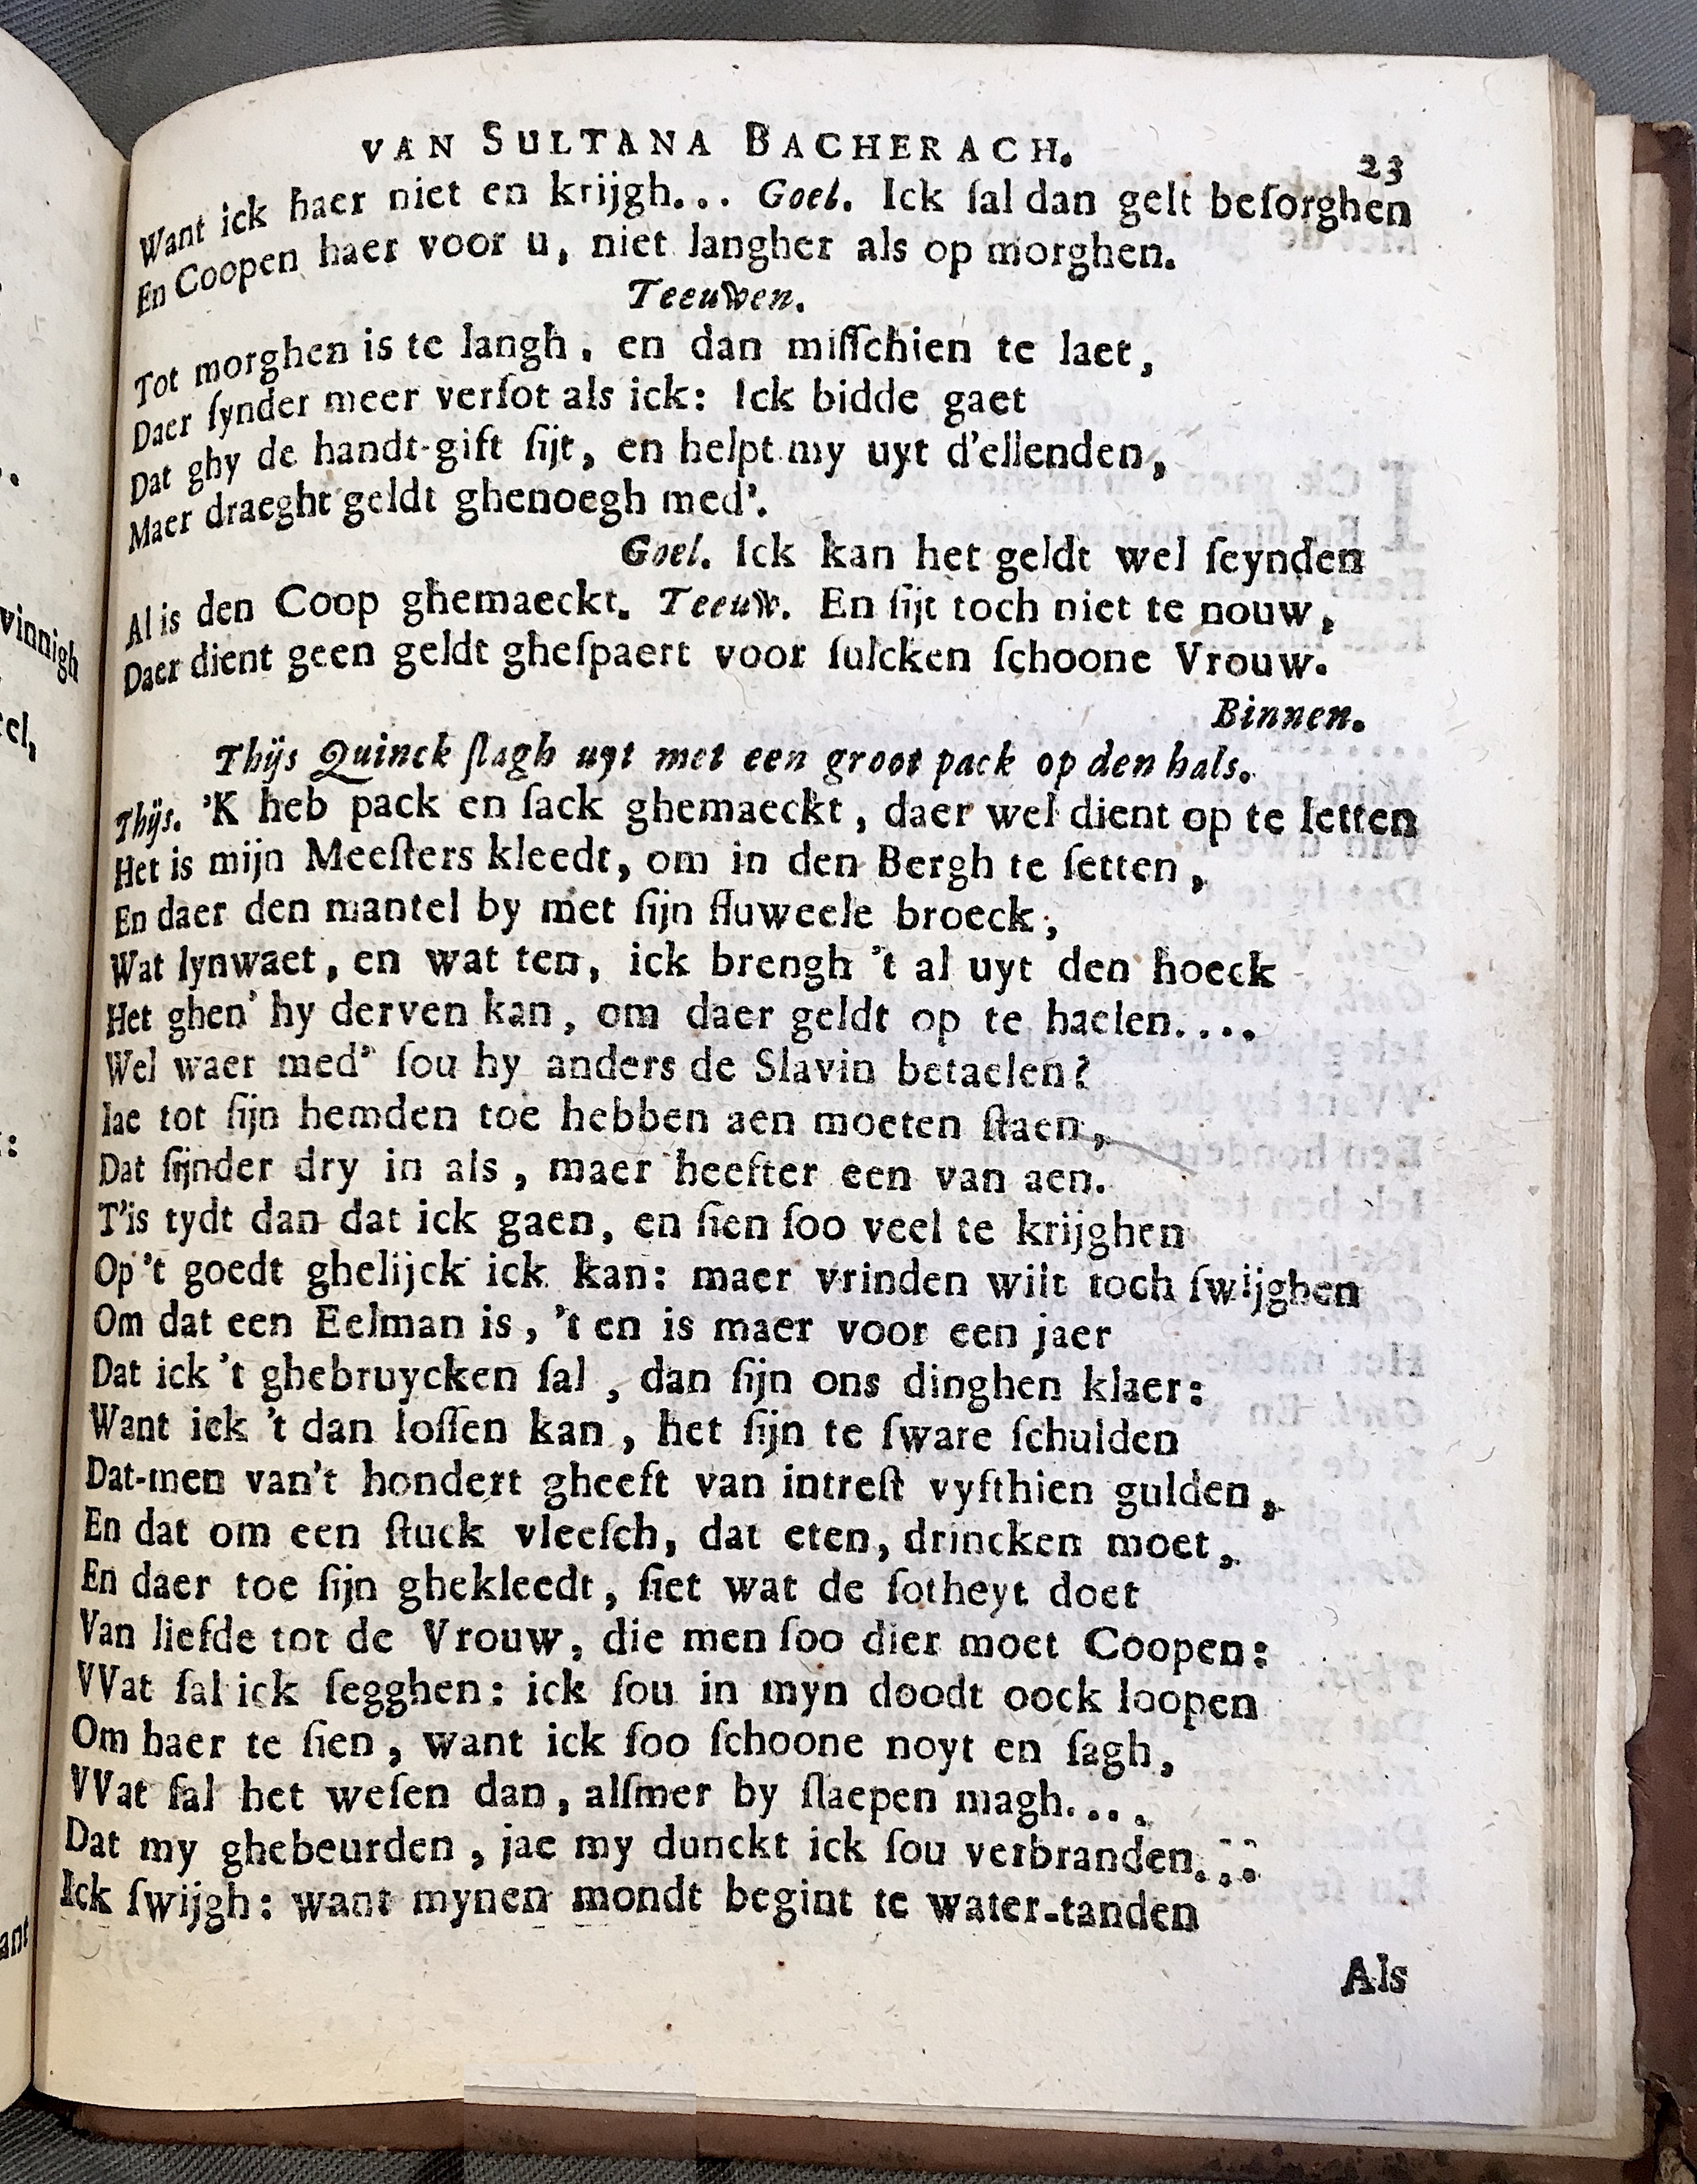 VAN SULTANA BACHERACH. 23
Want ick haer niet en krijgh... Goel. Ick ſal dan gelt beſorghen
En Coopen haer voor u, niet langher als op morghen.
Teeuwen.
Tot morghen is te langh, en dan miſſchien te laet,
Daer ſynder meer verſot als ick: Ick bidde gaet
Dat ghy de handt-gift ſijt, en helpt my uyt d'ellenden,
Maer draeght geldt ghenoegh med'.
Goel. Ick kan het geldt wel ſeynden
Al is den Coop ghemaeckt. Teeuw. En ſijt toch niet te nouw,
Daer dient geen geldt gheſpaert voor ſulcken ſchoone Vrouw.
Binnen.
Thijs Quinck ſlagh uyt met een groot pack op den hals.
Thijs. 'K heb pack en ſack ghemaeckt, daer wel dient op te letten
Het is mijn Meeſters kleedt, om in den Bergh te ſetten,
En daer den mantel by met ſijn fluweele broeck;
Wat lynwaet, en wat ten, ick brengh 't al uyt den hoeck
Het ghen' hy derven kan, om daer geldt op te haelen....
Wel waer med' ſou hy anders de Slavin betaelen?
Iae tot ſijn hemden toe hebben aen moeten ſtaen,
Dat ſijnder dry in als, maer heefter een van aen.
T'is tydt dan dat ick gaen, en ſien ſoo veel te krijghen
Op 't goedt ghelijck ick kan: maer vrinden wilt toch ſwijghen
Om dat een Eelman is, 't en is maer voor een jaer
Dat ick 't ghebruycken ſal, dan ſijn ons dinghen klaer:
Want ick 't dan loſſen kan, het ſijn te ſware ſchulden
Dat-men van't hondert gheeft van intreſt vyfthien gulden,
En dat om een ſtuck vleeſch, dat eten, drincken moet,
En daer toe ſijn ghekleedt, ſiet wat de ſotheyt doet
Van liefde tot de Vrouw, die men ſoo dier moet Coopen:
VVat ſal ick ſegghen: ick ſou in myn doodt oock loopen
Om haer te ſien, want ick ſoo ſchoone noyt en ſagh,
VVat ſal het weſen dan, alſmer by ſlaepen magh....
Dat my ghebeurden, jae my dunckt ick ſou verbranden....
Ick ſwijgh: want mynen mondt begint te water-tanden
Als
vinnigh